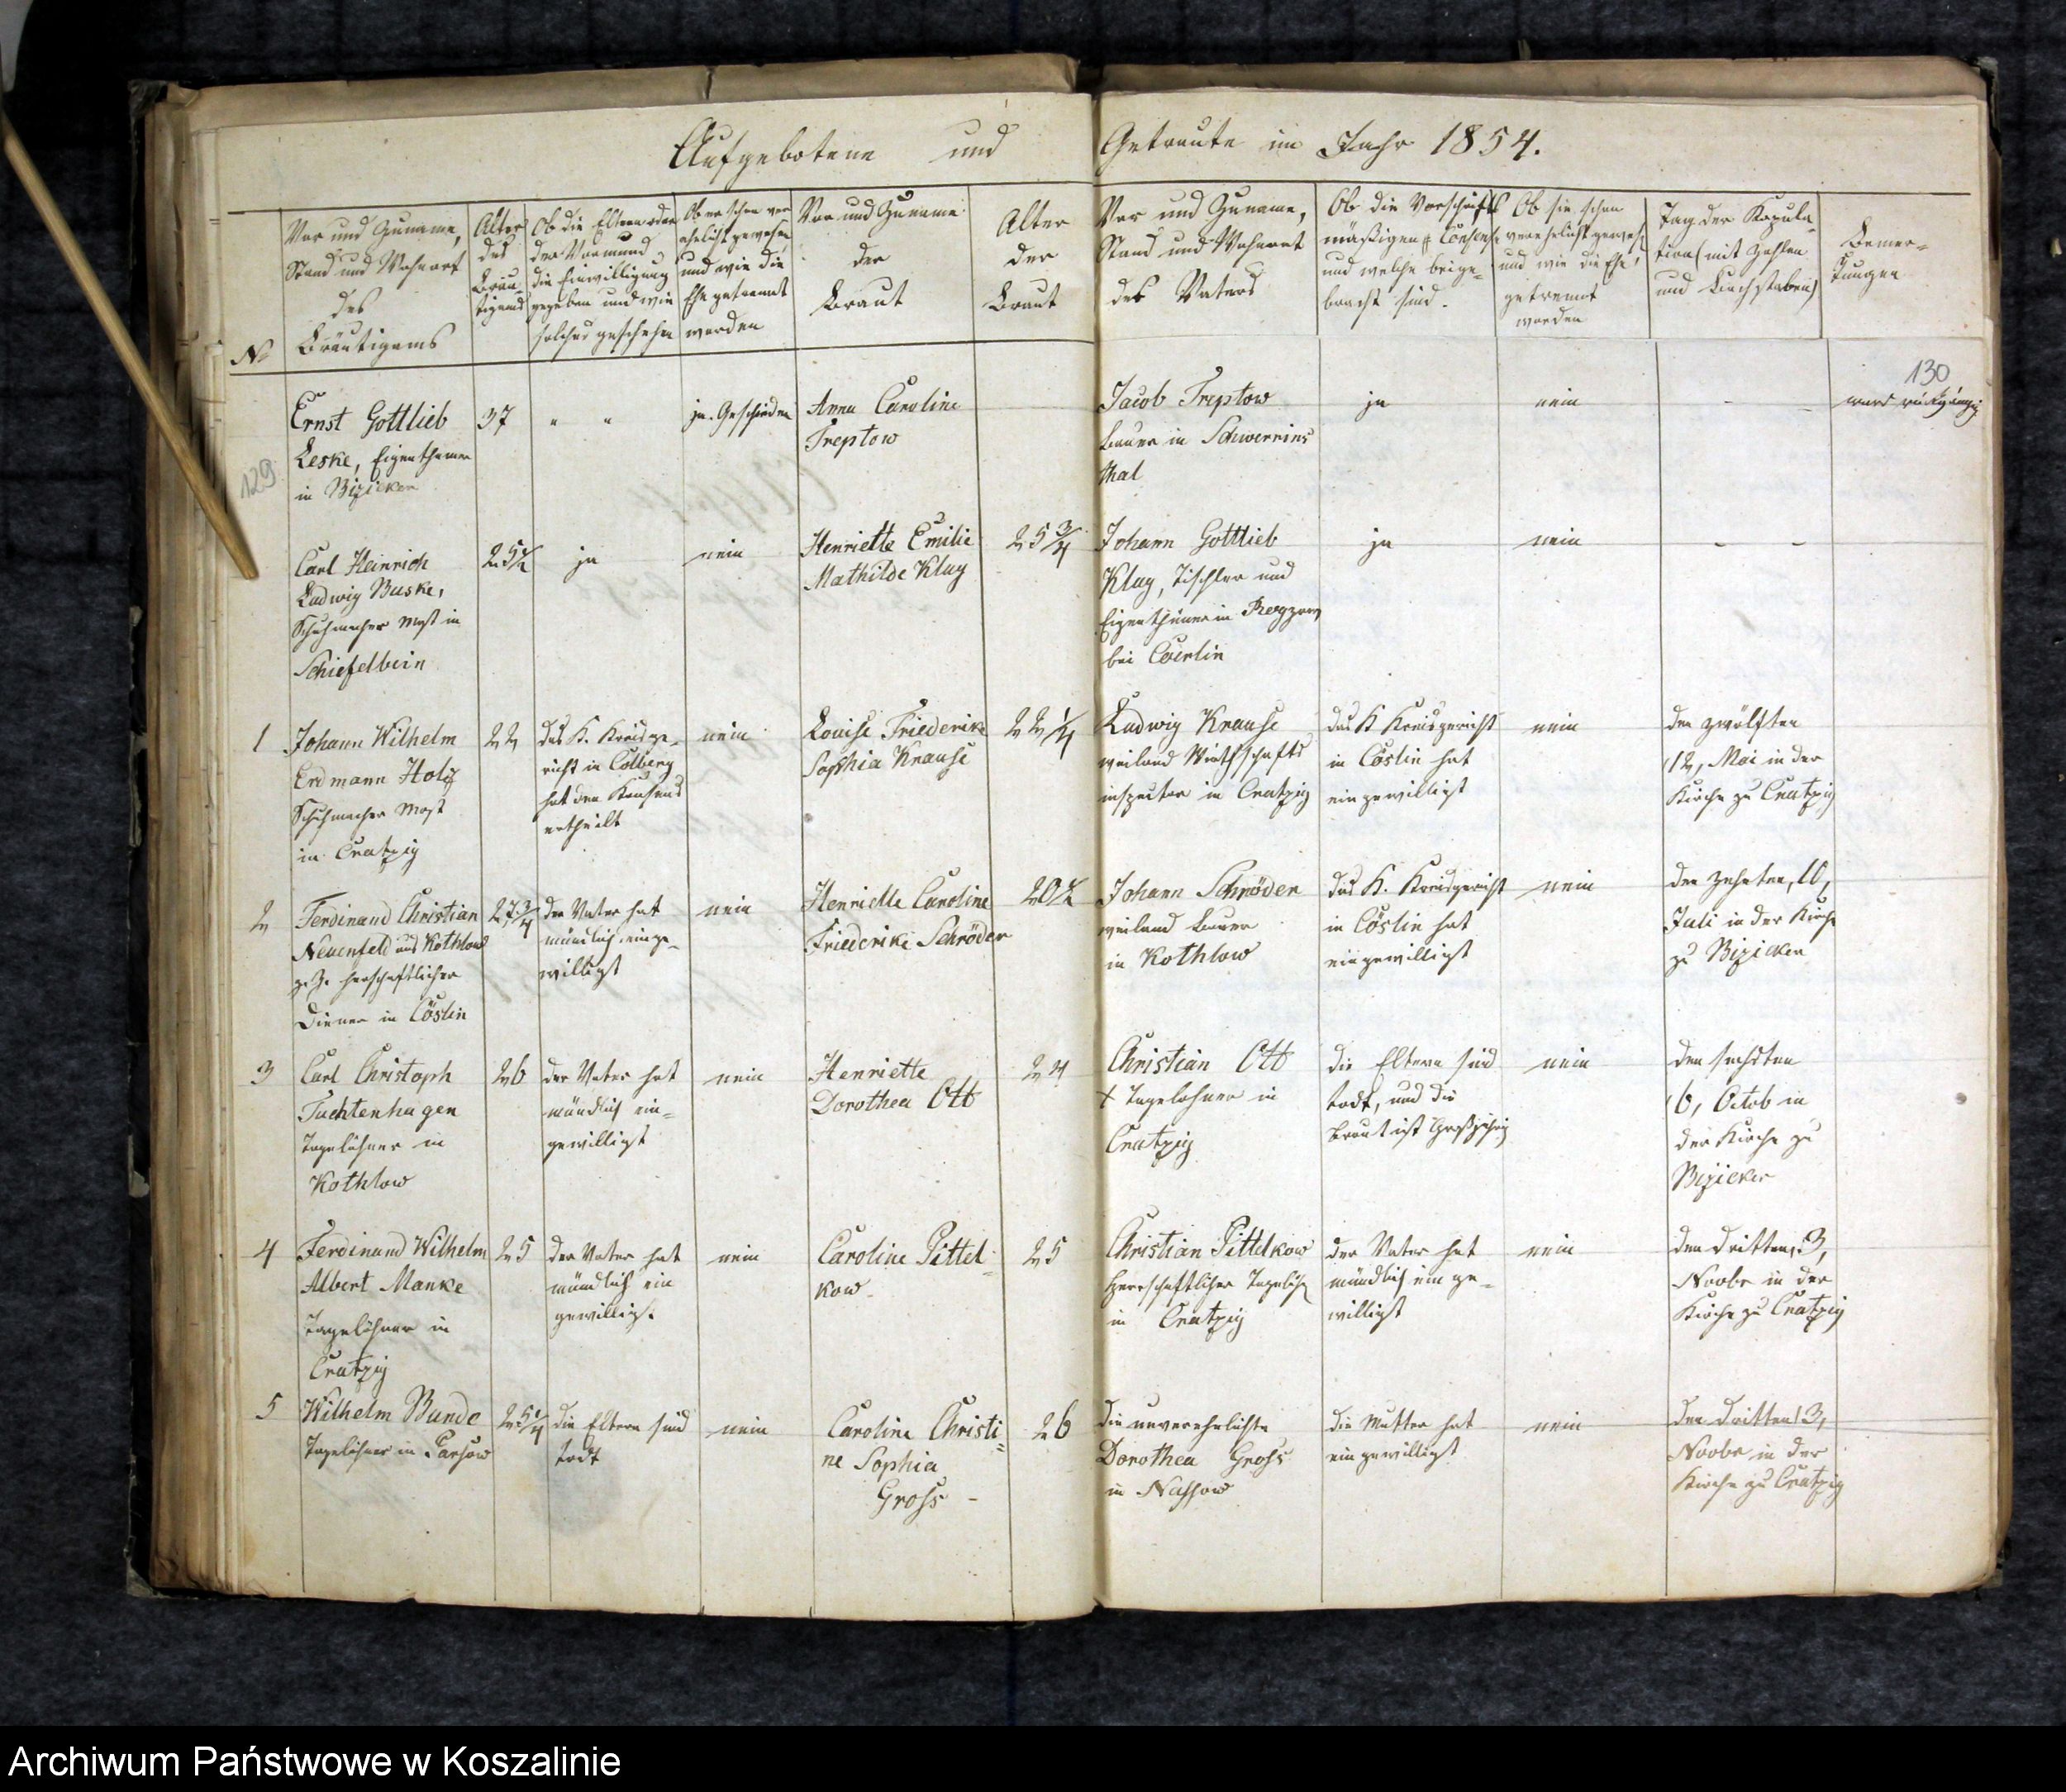 Aufgebotene und Getraute im Jahr 1854.
No
Vor und Zuname,
Stand und Wohnort
des
Bräutigams
Alter
des
Bräu-
tigams
Ob die Eltern oder
der Vormund
die Einwilligung
gegeben und wie
solches geschehen
Ob er schon ver
ehelicht gewesen
und wie die
Ehe getrennt
worden
Vor und Zuname
der
Braut
Alter
der
Braut
Vor und Zuname,
Stand und Wohnort
des Vaters
Ob die Vorschrifts
mäßigen Consense
und welche beige-
bracht sind.
Ob sie schon
verehelicht gewes.
und wie die Ehe
getrennt
worden
Tag der Kopula-
tion (mit Zahlen
und Buchstaben)
Bemer-
kungen
129
130
Ernst Gottlieb
Leske, Eigenthümer
in Bizicker
37
" "
ja. Geschieden
Anna Caroline
Treptow
Jacob Treptow
Bauer in Schwerins
thal
ja
nein
- -
ward rückgängig
Carl Heinrich
Ludwig Buske,
Schuhmacher Mstr in
Schiefelbein
25½
ja
nein
Henriette Emilie
Mathilde Klug
25¾
Johann Gottlieb
Klug, Tischler und
Eigenthümer in
bei Coerlin
ja
nein
- -
1
Johann Wilhelm
Erdmann Holz
Schuhmacher Mstr
in Cratzig
22
das K. Kreisge-
richt in Colberg
hat den Konsens
ertheilt
nein
Louise Friederike
Sophia Krause
22¼
Ludwig Krause
weiland Wirthschafts
inspector in Cratzig
das K Kreisgericht
in Cöslin hat
eingewilligt
nein
den zwölften
(12, Mai in der
Kirche zu Cratzig
2
Ferdinand Christian
Neuenfeld aus Kothlow
z. Z. herschaftlicher
Diener in Cöslin
27¾
der Vater hat
mündlich einge-
willigt
nein
Henriette Caroline
Friederike Schröder
20½
Johann Schröder
weiland Bauer
in Kothlow
das K. Kreisgericht
in Cöslin hat
eingewilligt
nein
den zehnten, 10,
Juli in der Kirche
zu Bizicker
3
Carl Christoph
Tachtenhagen
Tagelöhner in
Kothlow
26
der Vater hat
mündlich ein=
gewilligt
nein
Henriette
Dorothea Ott
24
Christian Ott
+ Tagelöhner in
Cratzig
die Eltern sind
todt, und die
Braut ist Großjährig
nein
den sechsten
(6, Octob in
der Kirche zu
Bizicker
4
Ferdinand Wilhelm
Albert Manke
Tagelöhner in
Cratzig
25
der Vater hat
mündlich ein
gewilligt.
nein
Caroline Pittel=
kow.
25
Christian Pittelkow
Herrschaftlicher Tagelöh
in Cratzig
der Vater hat
mündlich ein ge-
willigt
nein
den dritten, 3,
Novbr in der
Kirche zu Cratzig
5
Wilhelm Bunde
Tagelöhner in Parsow
25¼
die Eltern sind
todt
nein
Caroline Christi=
ne Sophia
Gross -
26
die unverehelichte
Dorothea Gross
in Nassow
die Mutter hat
eingewilligt
nein
den dritten (3,
Novbr in der
Kirche zu Cratzig
Archiwum Państwowe w Koszalinie